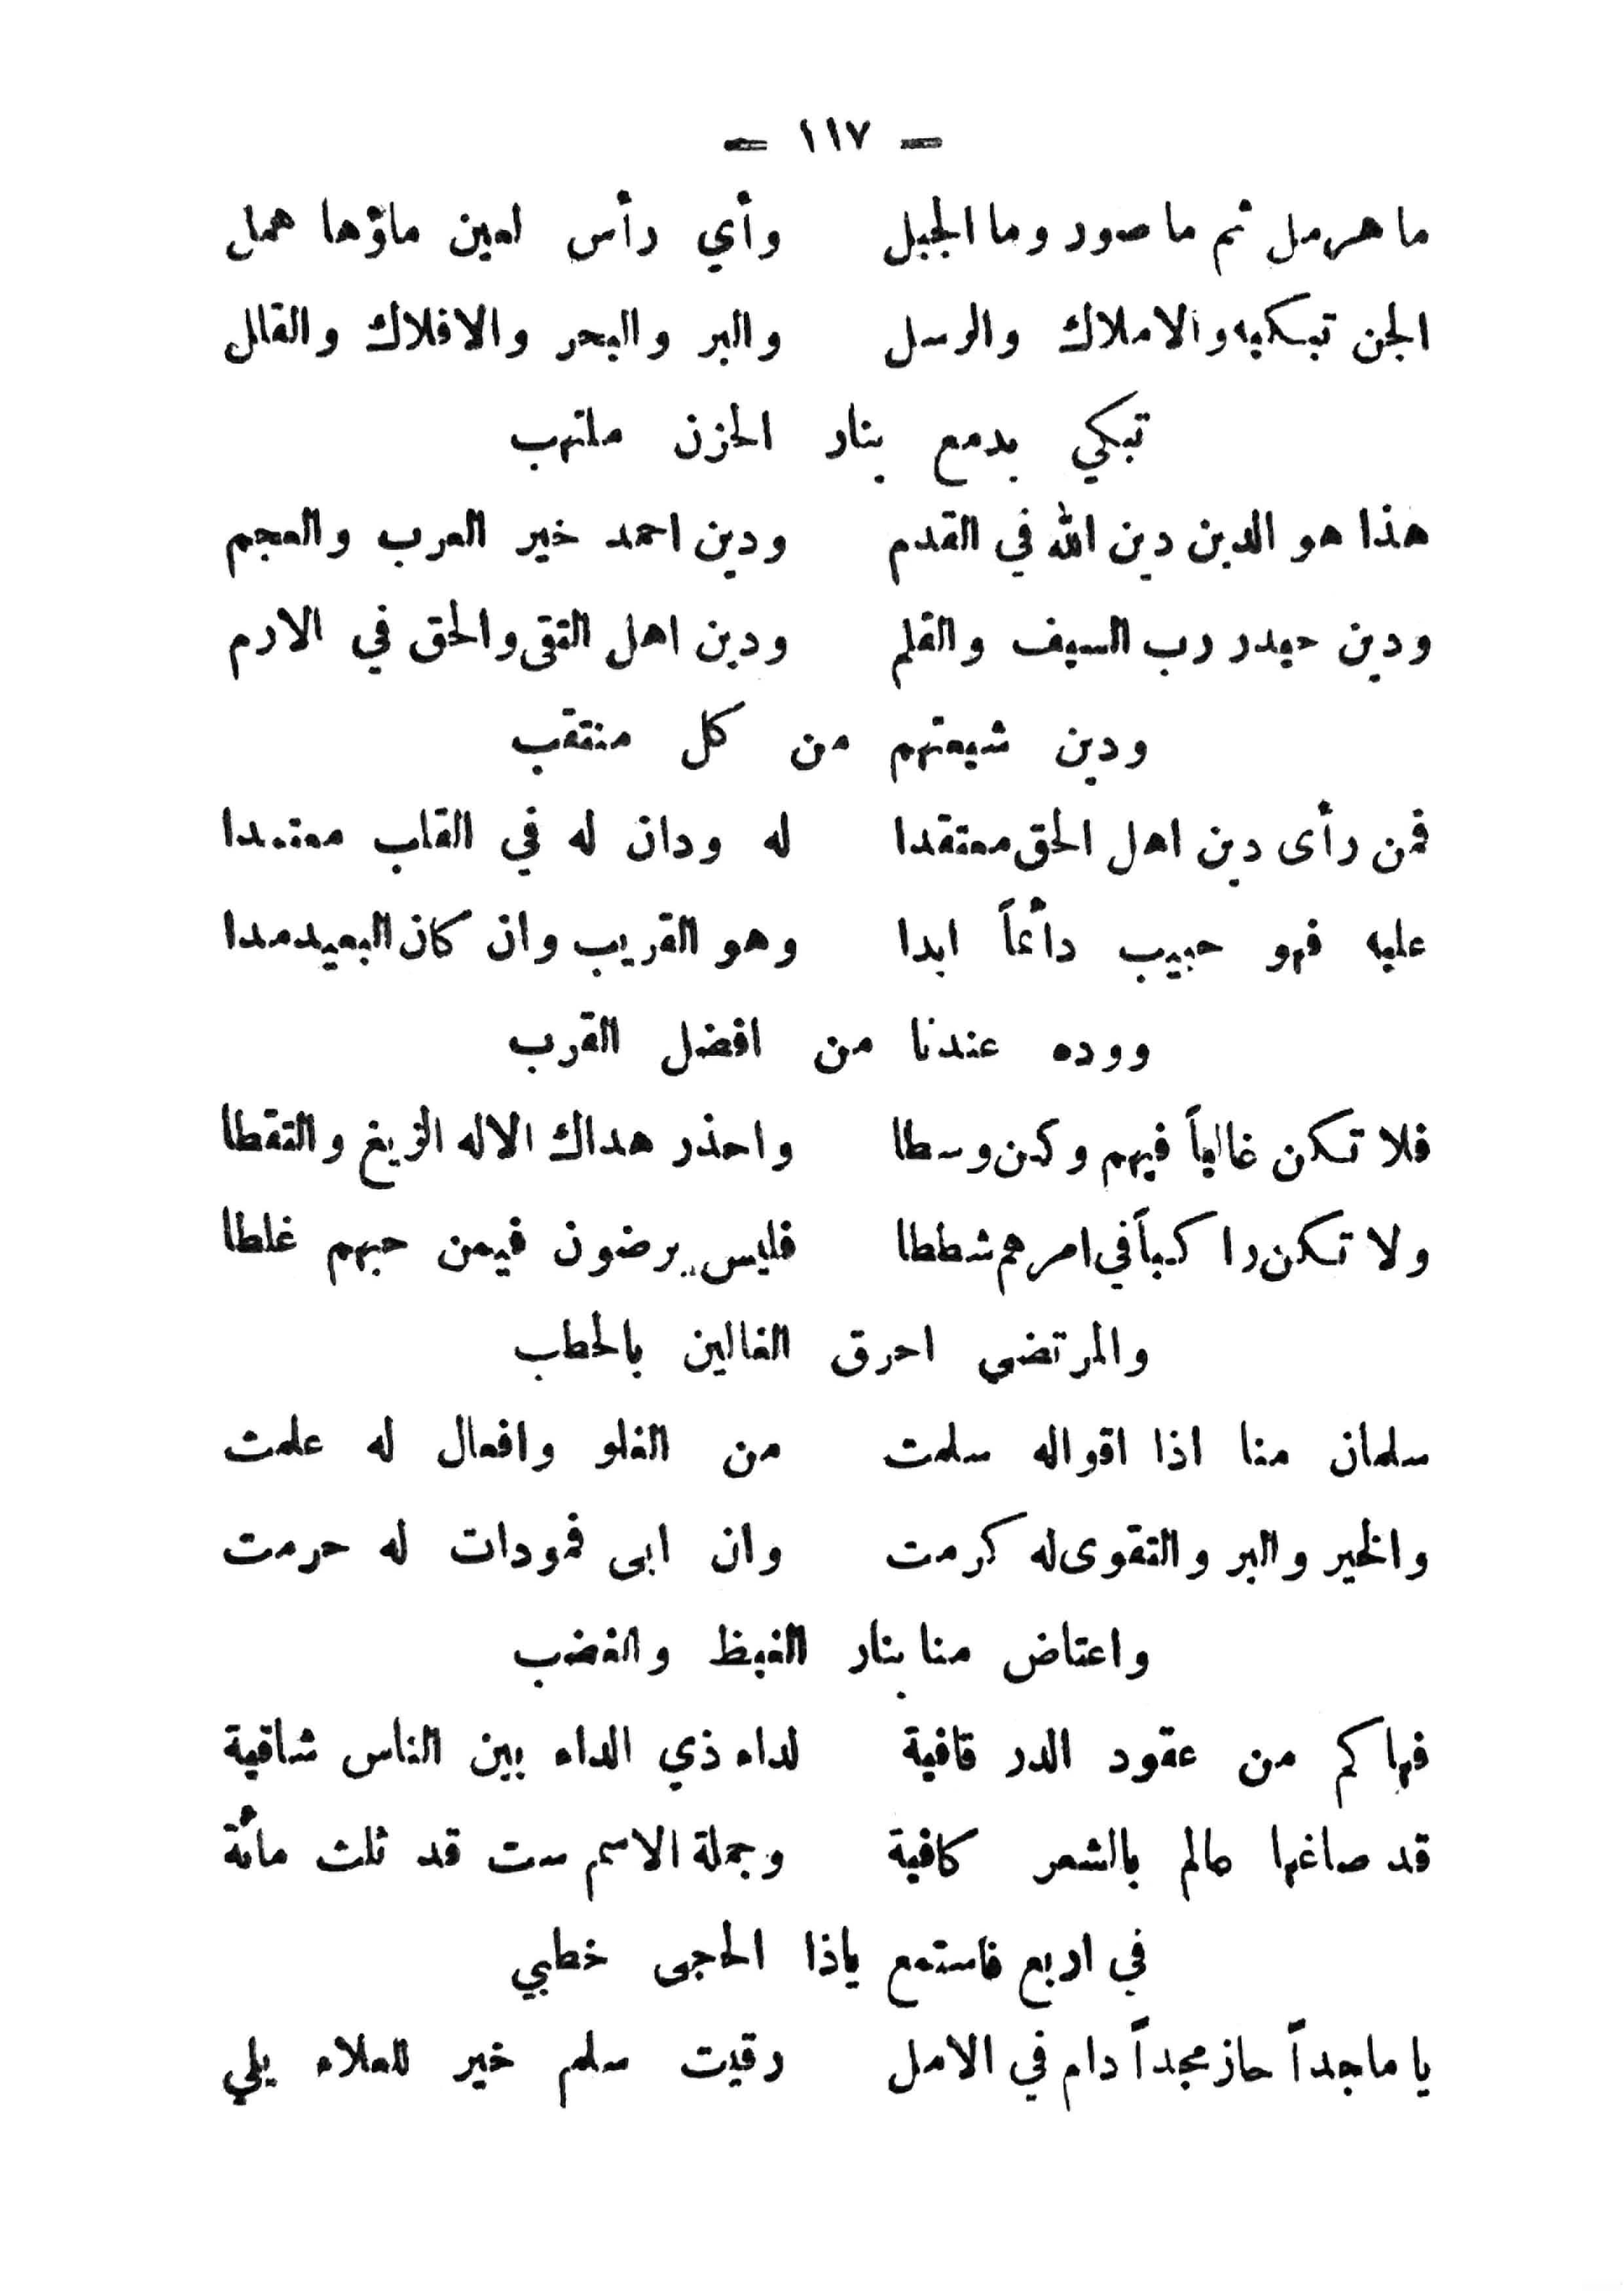 — ١١٧ —
ما هرمل ثم ما صور وما الجبل وأي رأس لعين ماؤها همل
الجن تبكيه والاملاك والرسل والبر والبحر والافلاك والقلل
تبكي بدمع بنار الحزن ملتهب
هذا هو الدين دين الله في القدم ودين احمد خير العرب والعجم
ودين حيدر رب السيف والقلم ودين اهل التقى والحق في الارم
ودين شيعتهم من كل منتقب
فمن رأى دين اهل الحق معتقدا له ودان له في القلب معتمدا
عليه فهو حبيب دائماً ابدا وهو القريب وان كان البعيد مدا
ووده عندنا من افضل القرب
فلا تكن غالياً فيهم وكن وسطا واحذر هداك الاله الزيغ والتقطا
ولا تكن راكباً في امرهم شططا فليس يرضون فيمن حبهم غلطا
والمرتضى احرق الغالين بالحطب
سلمان منا اذا اقواله سلمت من الغلو وافعال له علمت
والخير والبر والتقوى له كرمت وان ابى فمودات له حرمت
واعتاض منا بنار الغيظ والغضب
فهاكم من عقود الدر قافية لداء ذي الداء بين الناس شافية
قد صاغها عالم بالشعر كافية وجملة الاسم ست قد ثلث مائة
في اربع فاستمع ياذا الحجى خطبي
يا ماجداً حاز مجداً دام في الامل رقيت سلم خير للعلاء يلي